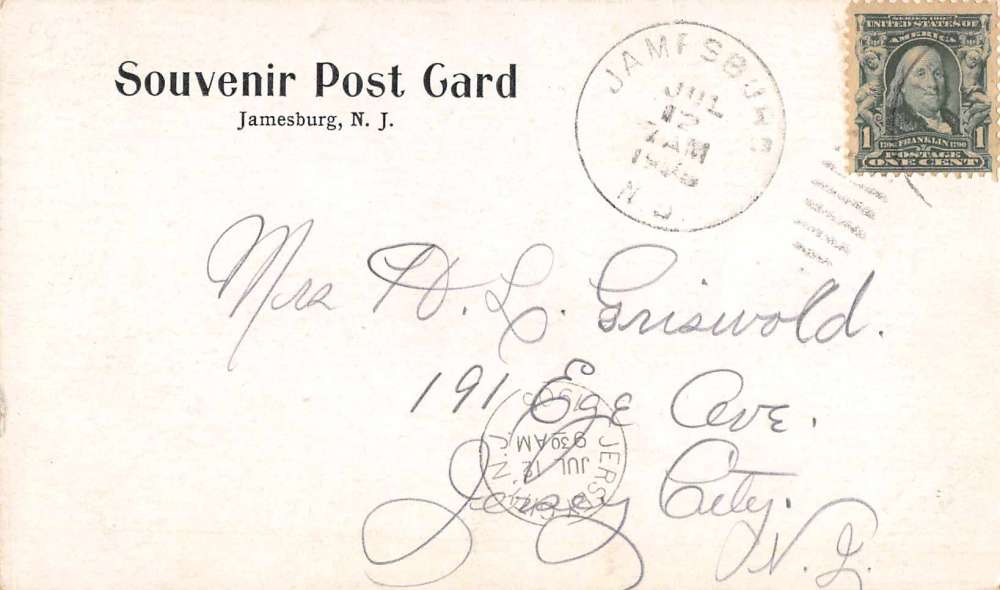 Souvenir Post Card
Jamesburg, N. J.
JAMESBURG
JUL
12
7 AM
N.J.
SERIES 1902
UNITED STATES OF
AMERICA
1 FRANKLIN 1
1706 1790
POSTAGE
ONE CENT
Mrs H. L. Griswold.
191 Ege Ave.
Jersey City.
N. J.
JERSEY CITY
JUL 12
930 AM
N.J.